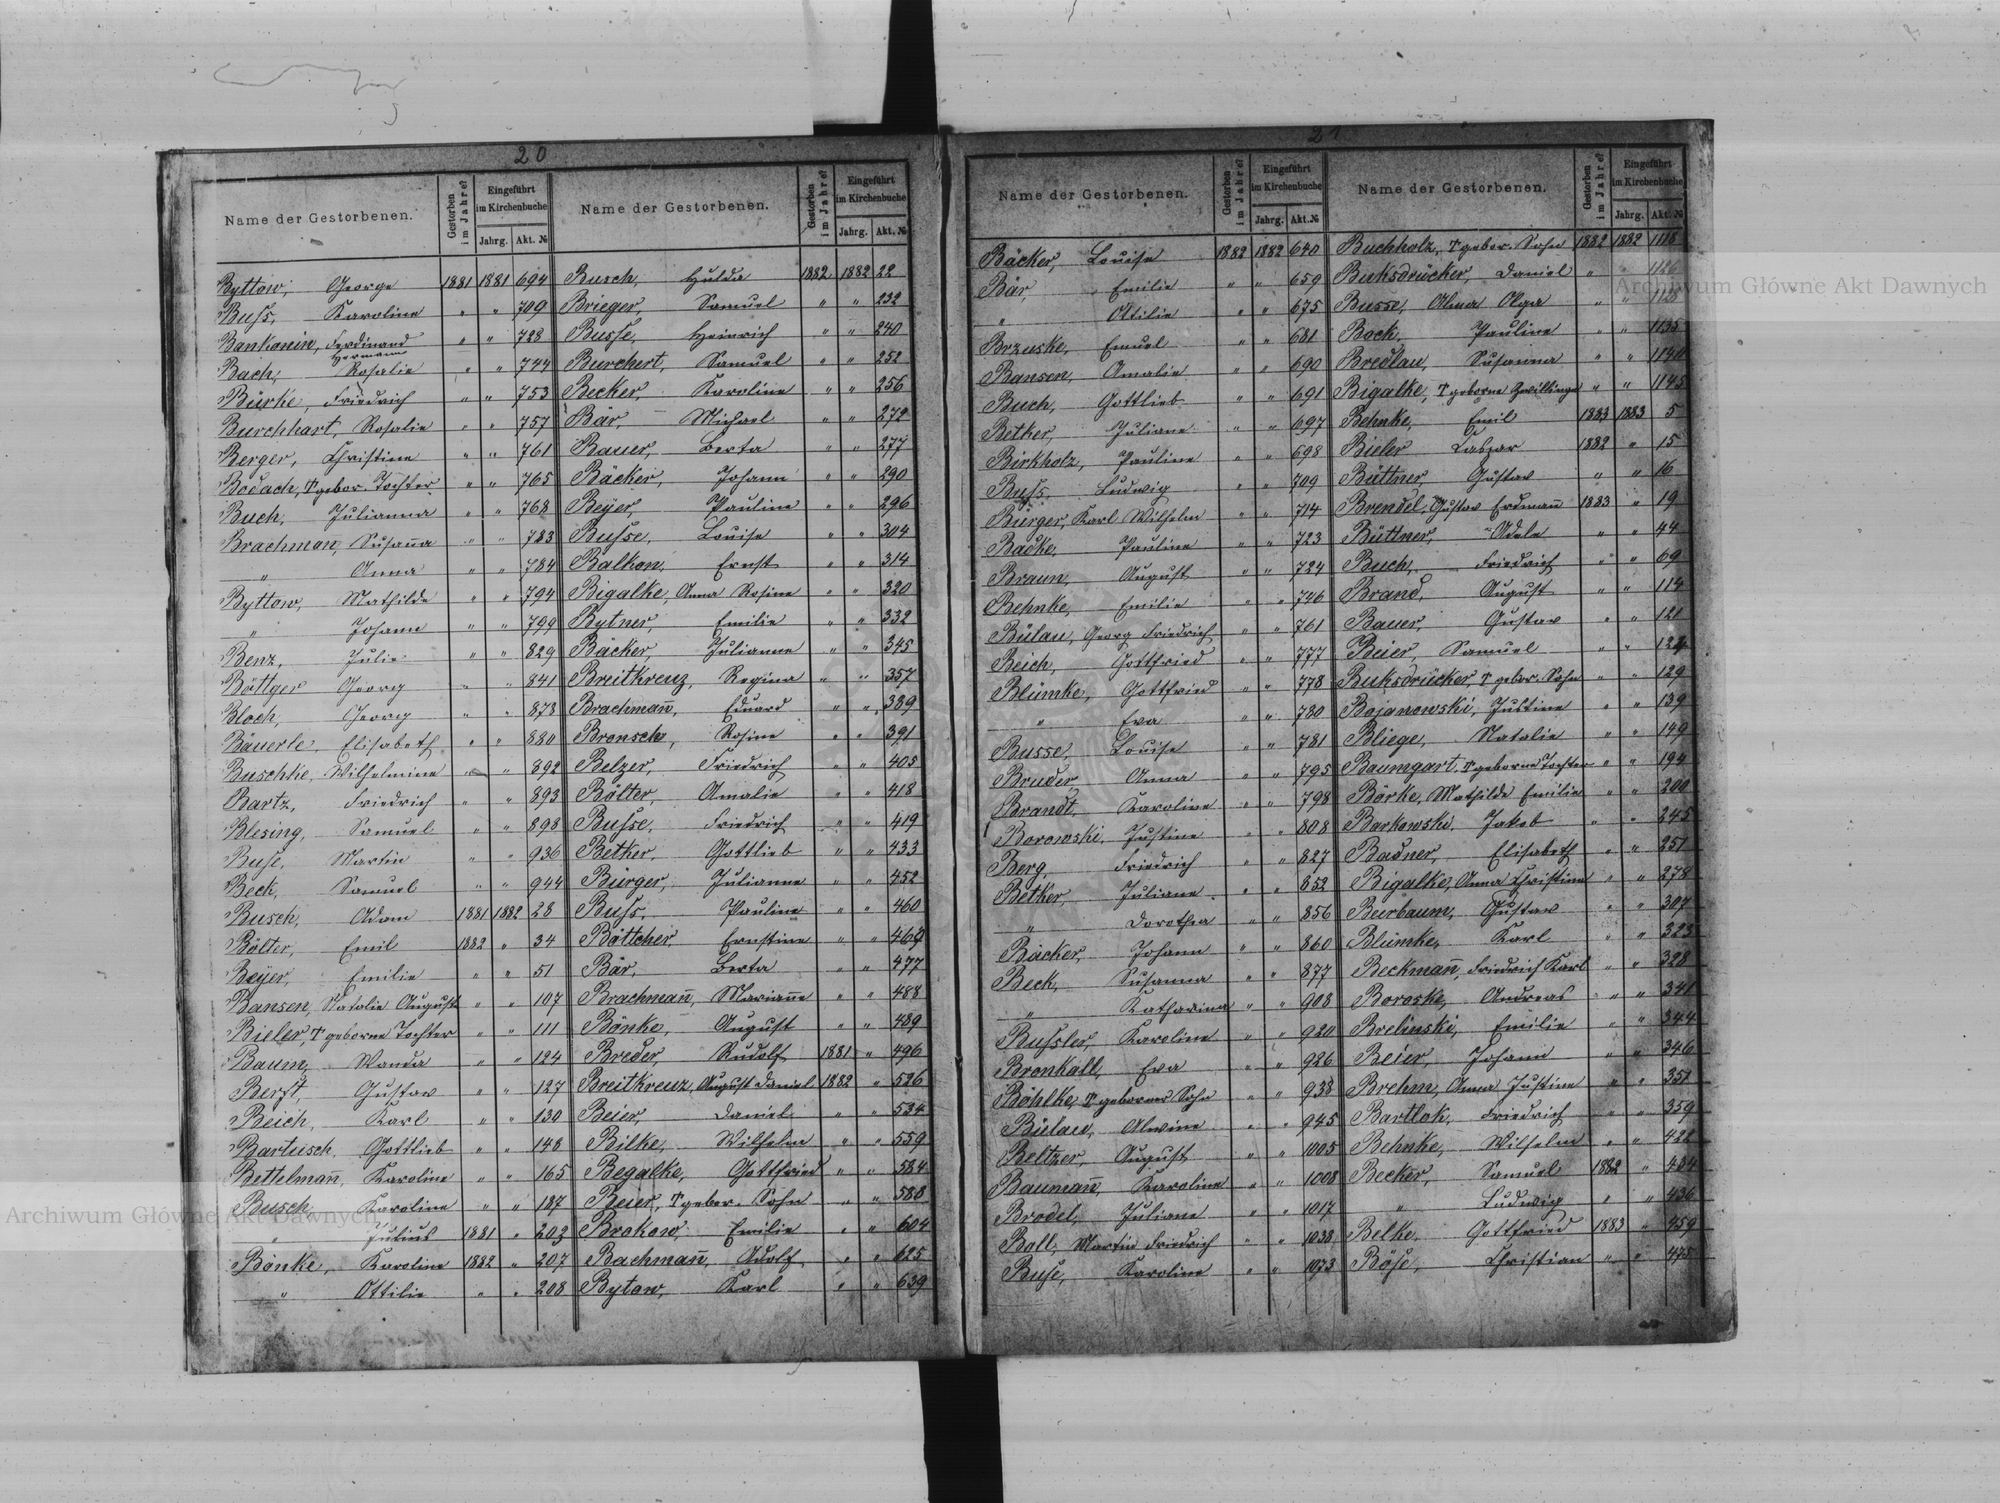 20
Name der Gestorbenen. Gestorben im Jahre? Eingeführt im Kirchenbuche Jahrg. Akt. №
Byttow, George 1881 1881 694
Buss, Karoline " " 709
Bankonin, Ferdinand Hermann " " 728
Bach, Rosalie " " 744
Bürke, Friedrich " " 753
Burchhart, Rosalie " " 757
Berger, Christine " " 761
Bodach, T gebor. Tochter " " 765
Buch, Julianna " " 768
Brachman, Susaña " " 783
" Anna " " 784
Byttow, Mathilde " " 794
" Johann " " 799
Benz, Julie " " 829
Böttger Georg " " 841
Bloch, Georg " " 878
Bäuerle, Elisabeth " " 880
Buschke, Wilhelmine " " 892
Bartz, Friedrich " " 893
Blesing, Samuel " " 898
Buse, Martin " " 936
Beck, Samuel " " 944
Busch, Adam 1881 1882 28
Bölter, Emil 1882 " 34
Beyer, Emilie " " 51
Bansen, Natalie Auguste " " 107
Bieler, T geborne Tochter " " 111
Baum, Wanda " " 124
Berft, Gustav " " 127
Beich, Karl " " 130
Bartusch, Gottlieb " " 148
Bettelmañ, Karoline " " 165
Busch, Karoline " " 187
" Julius 1881 " 203
Bönke, Karoline 1882 " 207
" Ottilie " " 208
Name der Gestorbenen. Gestorben im Jahre? Eingeführt im Kirchenbuche Jahrg. Akt. №
Busch, Hulda 1882 1882 22
Brieger, Samuel " " 232
Busse, Heinrich " " 240
Burchert, Samuel " " 252
Becker, Karoline " " 256
Bär, Michael " " 272
Bauer, Berta " " 277
Bäcker, Johann " " 290
Beyer, Pauline " " 296
Busse, Louise " " 304
Balkon, Ernst " " 314
Bigalke, Anna Rosine " " 320
Bytner, Emilie " " 332
Bäcker Julianne " " 345
Breitkreuz, Regina " " 357
Brachmañ, Eduard " " 389
Bronsch, Rosine " " 391
Belzer, Friedrich " " 405
Bölter, Amalie " " 418
Busse, Friedrich " " 419
Betker, Gottlieb " " 433
Bürger, Julianne " " 452
Buss, Pauline " " 460
Böttcher, Ernstine " " 469
Bär, Berta " " 477
Brachmañ, Mariañe " " 488
Bönke, August " " 489
Breder Rudolf 1881 " 496
Breitkreuz, August Daniel 1882 " 526
Beier, Daniel " " 534
Bilke, Wilhelm " " 559
Begalke, Gottfried " " 584
Beier, T gebor. Sohn " " 588
Brokow, Emilie " " 604
Bachmañ, Adolf " " 625
Bytow, Karl " " 639
21
Name der Gestorbenen. Gestorben im Jahre? Eingeführt im Kirchenbuche Jahrg. Akt. №
Bäcker, Louise 1882 1882 640
Bär, Emilie " " 659
" Ottilie " " 675
Brzuske, Emuel " " 681
Bansen, Amalie " " 690
Buch, Gottlieb " " 691
Betker, Juliane " " 697
Birkholz, Pauline " " 698
Buss, Ludwig " " 709
Bürger, Karl Wilhelm " " 714
Badke, Pauline " " 723
Braun, August " " 724
Behnke, Emilie " " 746
Bülau, Georg Friedrich " " 761
Beich, Gottfried " " 777
Blümke, Gottfried " " 778
" Eva " " 780
Busse, Louise " " 781
Bruder, Anna " " 795
Brandt, Karoline " " 798
Borowski, Justine " " 808
Berg, Friedrich " " 827
Betker, Juliane " " 852
" Dorothea " " 856
Bäcker, Johann " " 860
Beck, Susanna " " 877
" Katharina " " 908
Bussler, Karoline " " 920
Bronkall, Eva " " 926
Böhlke, T geborner Sohn " " 938
Bülau, Alwine " " 945
Beltzer, August " " 1005
Baumañ, Karoline " " 1008
Brodel, Juliane " " 1017
Boll, Martin Friedrich " " 1038
Buse, Karoline " " 1073
Name der Gestorbenen. Gestorben im Jahre? Eingeführt im Kirchenbuche Jahrg. Akt. №
Buchholz, T gebor. Sohn 1882 1882 1118
Buksdrücker, Daniel " " 1126
Busse, Alma Olga " " 1128
Bock, Pauline " " 1135
Bredlau, Susanna " " 1140
Bigalke, T geborne Zwillinge " " 1145
Behnke, Emil 1883 1883 5
Bieler Caspar 1882 " 15
Büttner, Gustav " " 16
Brendel, Gustav Erdmañ 1883 " 19
Büttner, Adele " " 44
Buch, Friedrich " " 69
Brand, August " " 114
Bauer, Gustav " " 121
Beier, Samuel " " 124
Buksdrücker, T gebor. Sohn " " 129
Bojanowski, Justine " " 139
Bliege, Natalie " " 149
Baumgart, T geborne Tochter " " 194
Börke, Mathilde Emilie " " 200
Barkowski, Jakob " " 245
Badner, Elisabeth " " 251
Bigalke, Anna Christine " " 278
Beerbaum, Gustav " " 307
Blümke, Karl " " 323
Beckmañ, Friedrich Karl " " 328
Boroske, Andreas " " 341
Brelinski, Emilie " " 344
Beier, Johann " " 346
Brehm, Anna Justine " " 351
Bartlok, Friedrich " " 359
Behnke, Wilhelm " " 422
Becker, Samuel 1882 " 434
" Ludwig " " 436
Belke, Gottfried 1883 " 459
Böse, Christian " " 475
Archiwum Główne Akt Dawnych
Archiwum Główne Akt Dawnych